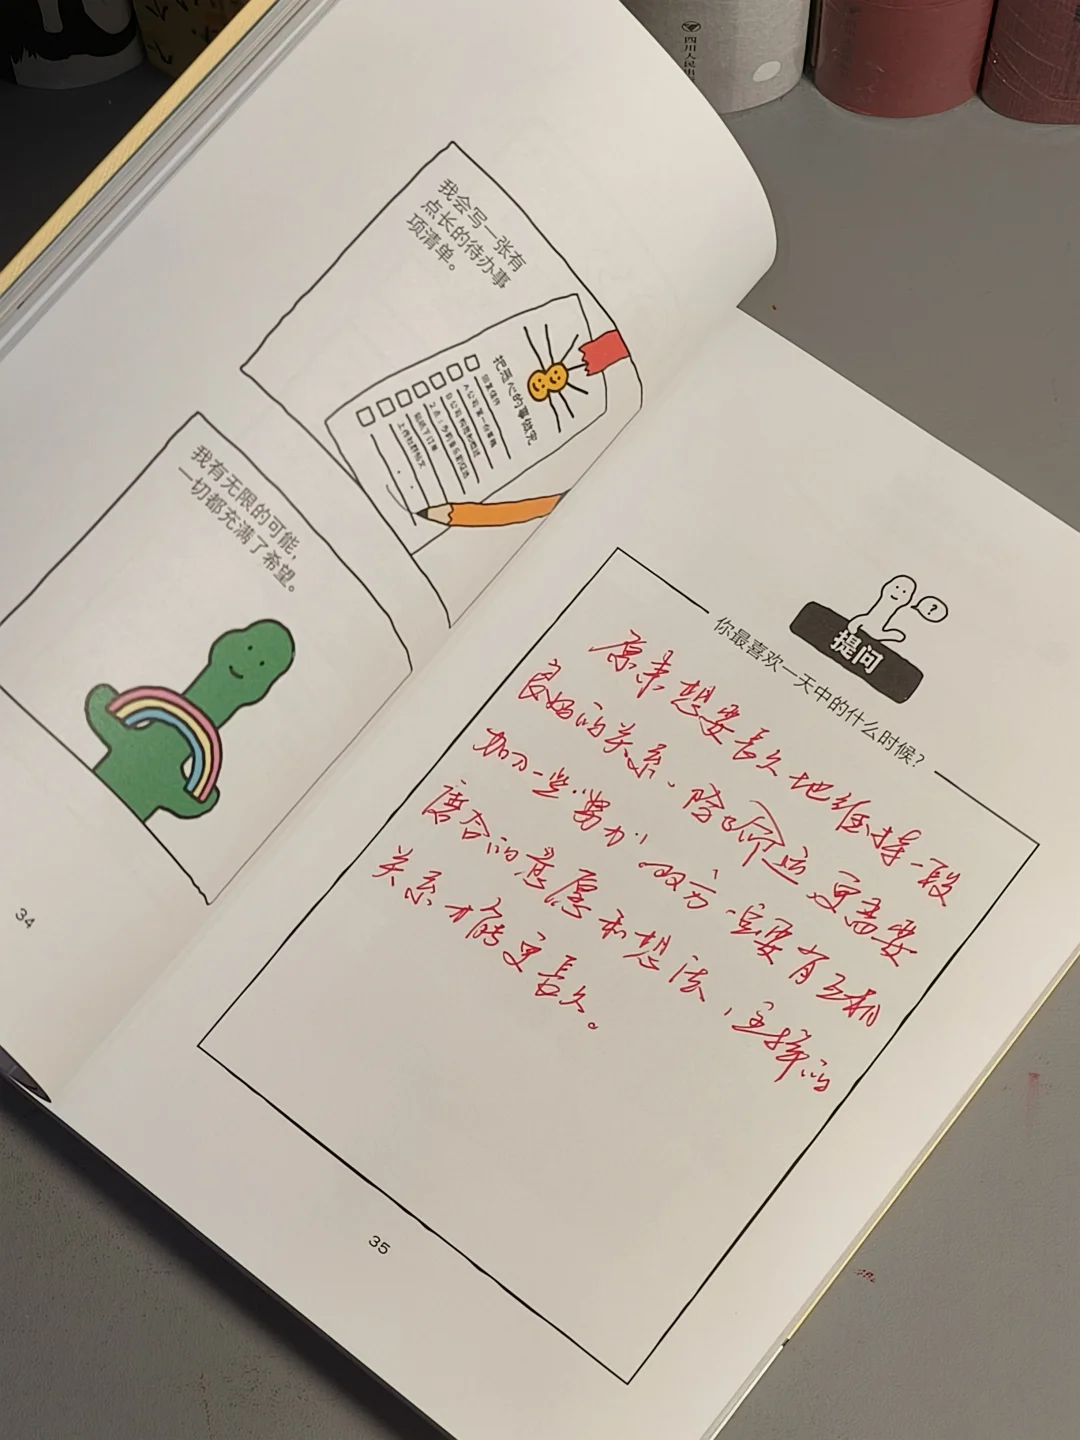 四川人民出
我会写一张有
点长的待办事
项清单。
把用心的事做完
回复信件
2点：
上传社群帖文
我有无限的可能，
一切都充满了希望。
34
提问
你最喜欢一天中的什么时候？
原来想要長久地维持一段
良好的关系、除了命运更需要
加一些努力，双方一定要有互相
磨合的意愿和想法，这样的
关系才能更長久。
35